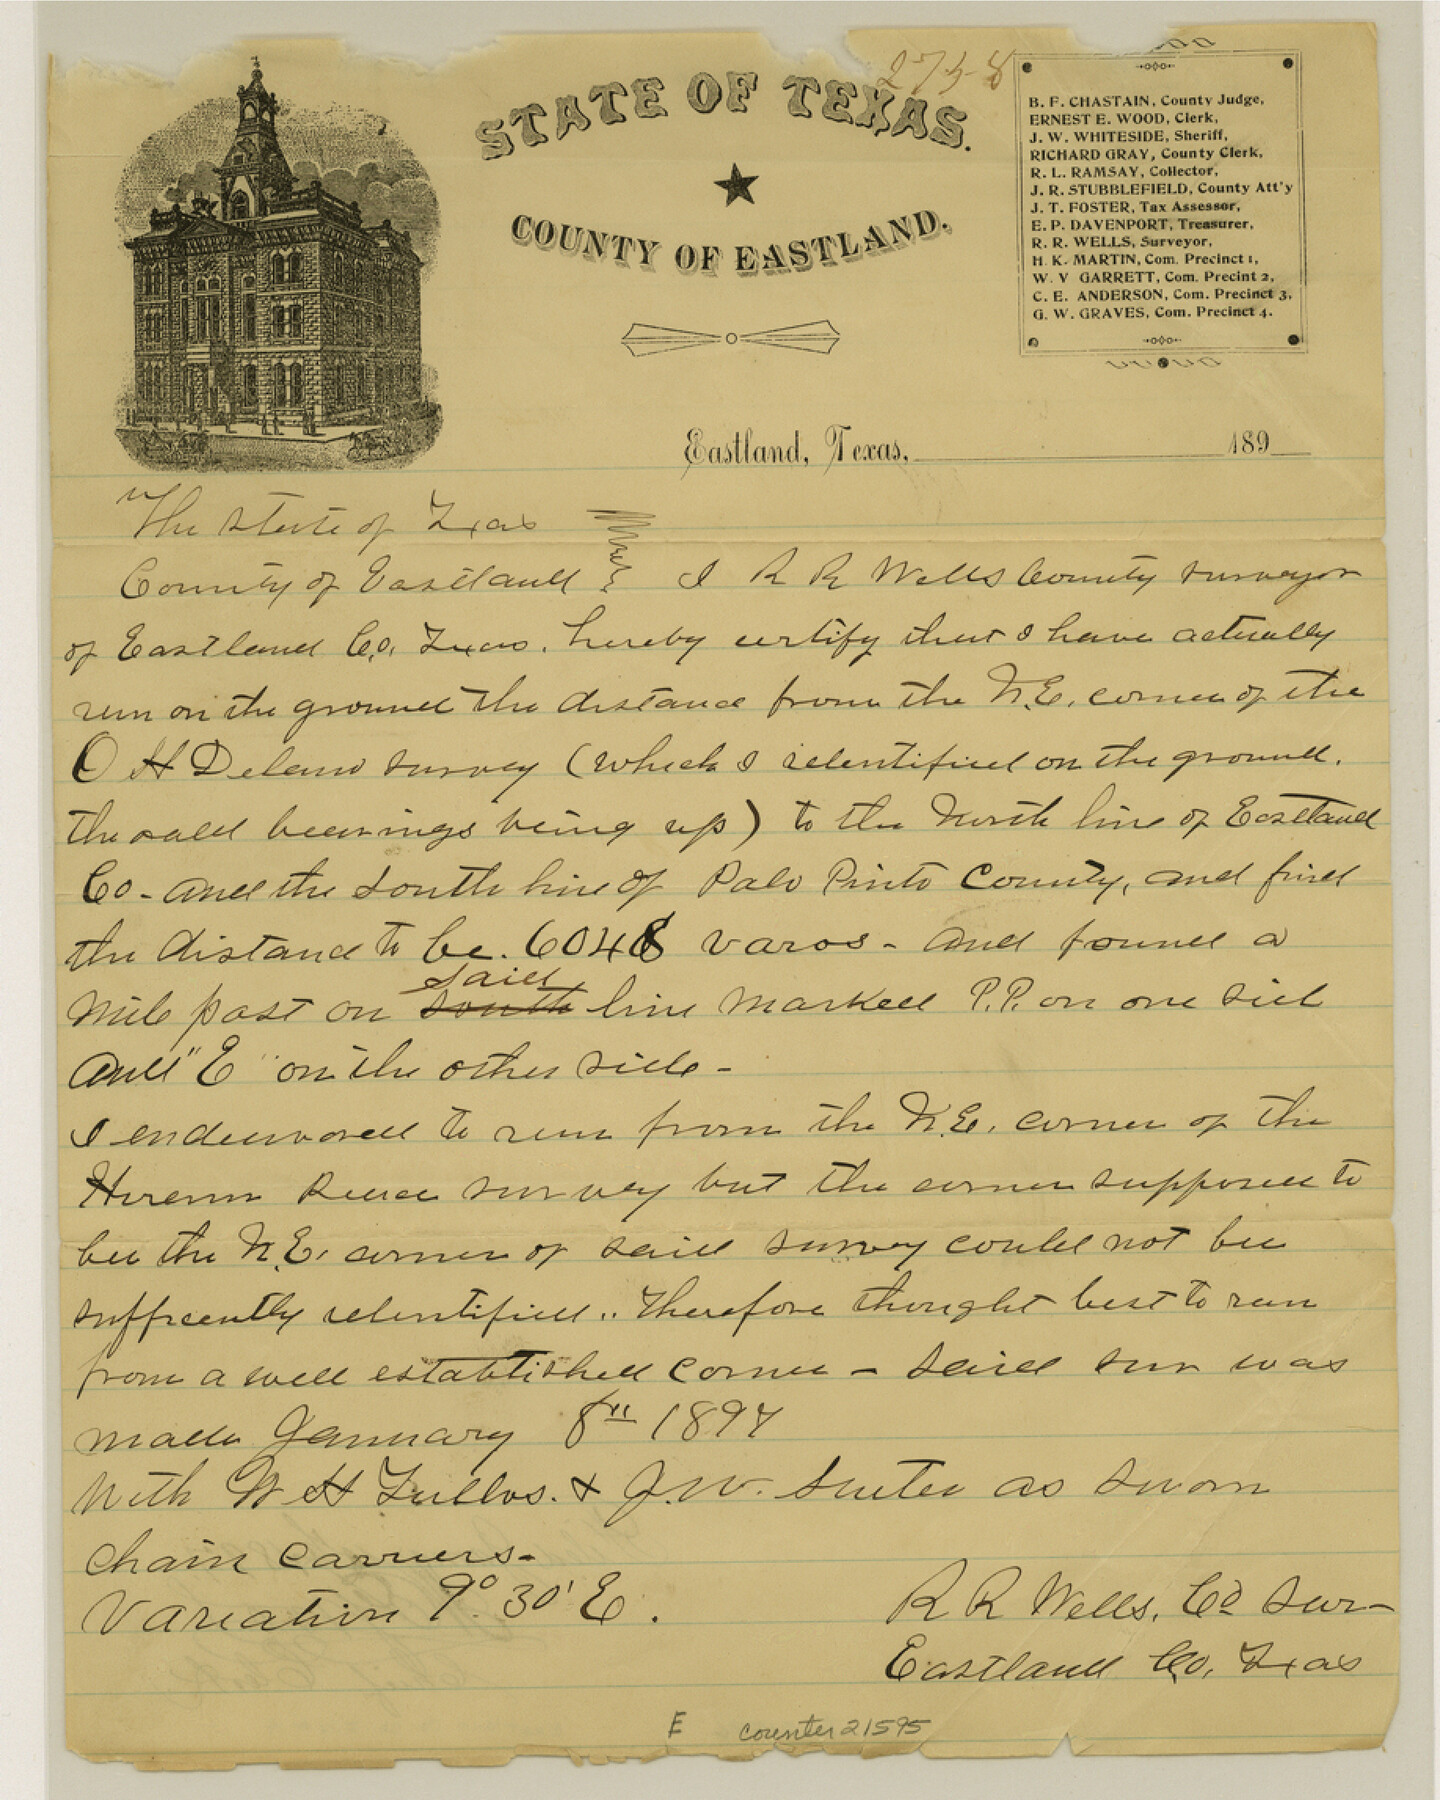 2738
STATE OF TEXAS.
COUNTY OF EASTLAND.
B. F. CHASTAIN, County Judge,
ERNEST E. WOOD, Clerk,
J. W. WHITESIDE, Sheriff,
RICHARD GRAY, County Clerk,
R. L. RAMSAY, Collector,
J. R. STUBBLEFIELD, County Att'y
J. T. FOSTER, Tax Assessor,
E. P. DAVENPORT, Treasurer,
R. R. WELLS, Surveyor,
H. K. MARTIN, Com. Precinct 1,
W. V GARRETT, Com. Precint 2,
C. E. ANDERSON, Com. Precinct 3,
G. W. GRAVES, Com. Precinct 4.
Eastland, Texas, 189
The State of Texas
County of Eastland I R R Wells County surveyor
of Eastland Co. Texas. hereby certify that I have actually
run on the ground the distance from the N.E. corner of the
O H Delano survey (which I identified on the ground.
the call bearings being up) to the North line of Eastland
Co - and the south line of Palo Pinto County, and find
the distance to be. 6048 varas - and found a
said
mile post on south line marked P.P. on one side
and "E" on the other side -
I endeavored to run from the N.E. corner of the
Hiram Reece survey but the corner supposed to
bee the N.E. corner of said survey could not bee
sufficently identified.. Therefore thought best to run
from a well established corner - said sur was
made January 8" 1897
With W H Fullos. & J.W. Suter as sworn
chain carriers -
Variation 9° 30' E.
R R Wells, Co Sur -
Eastland Co, Texas
E counter 21595